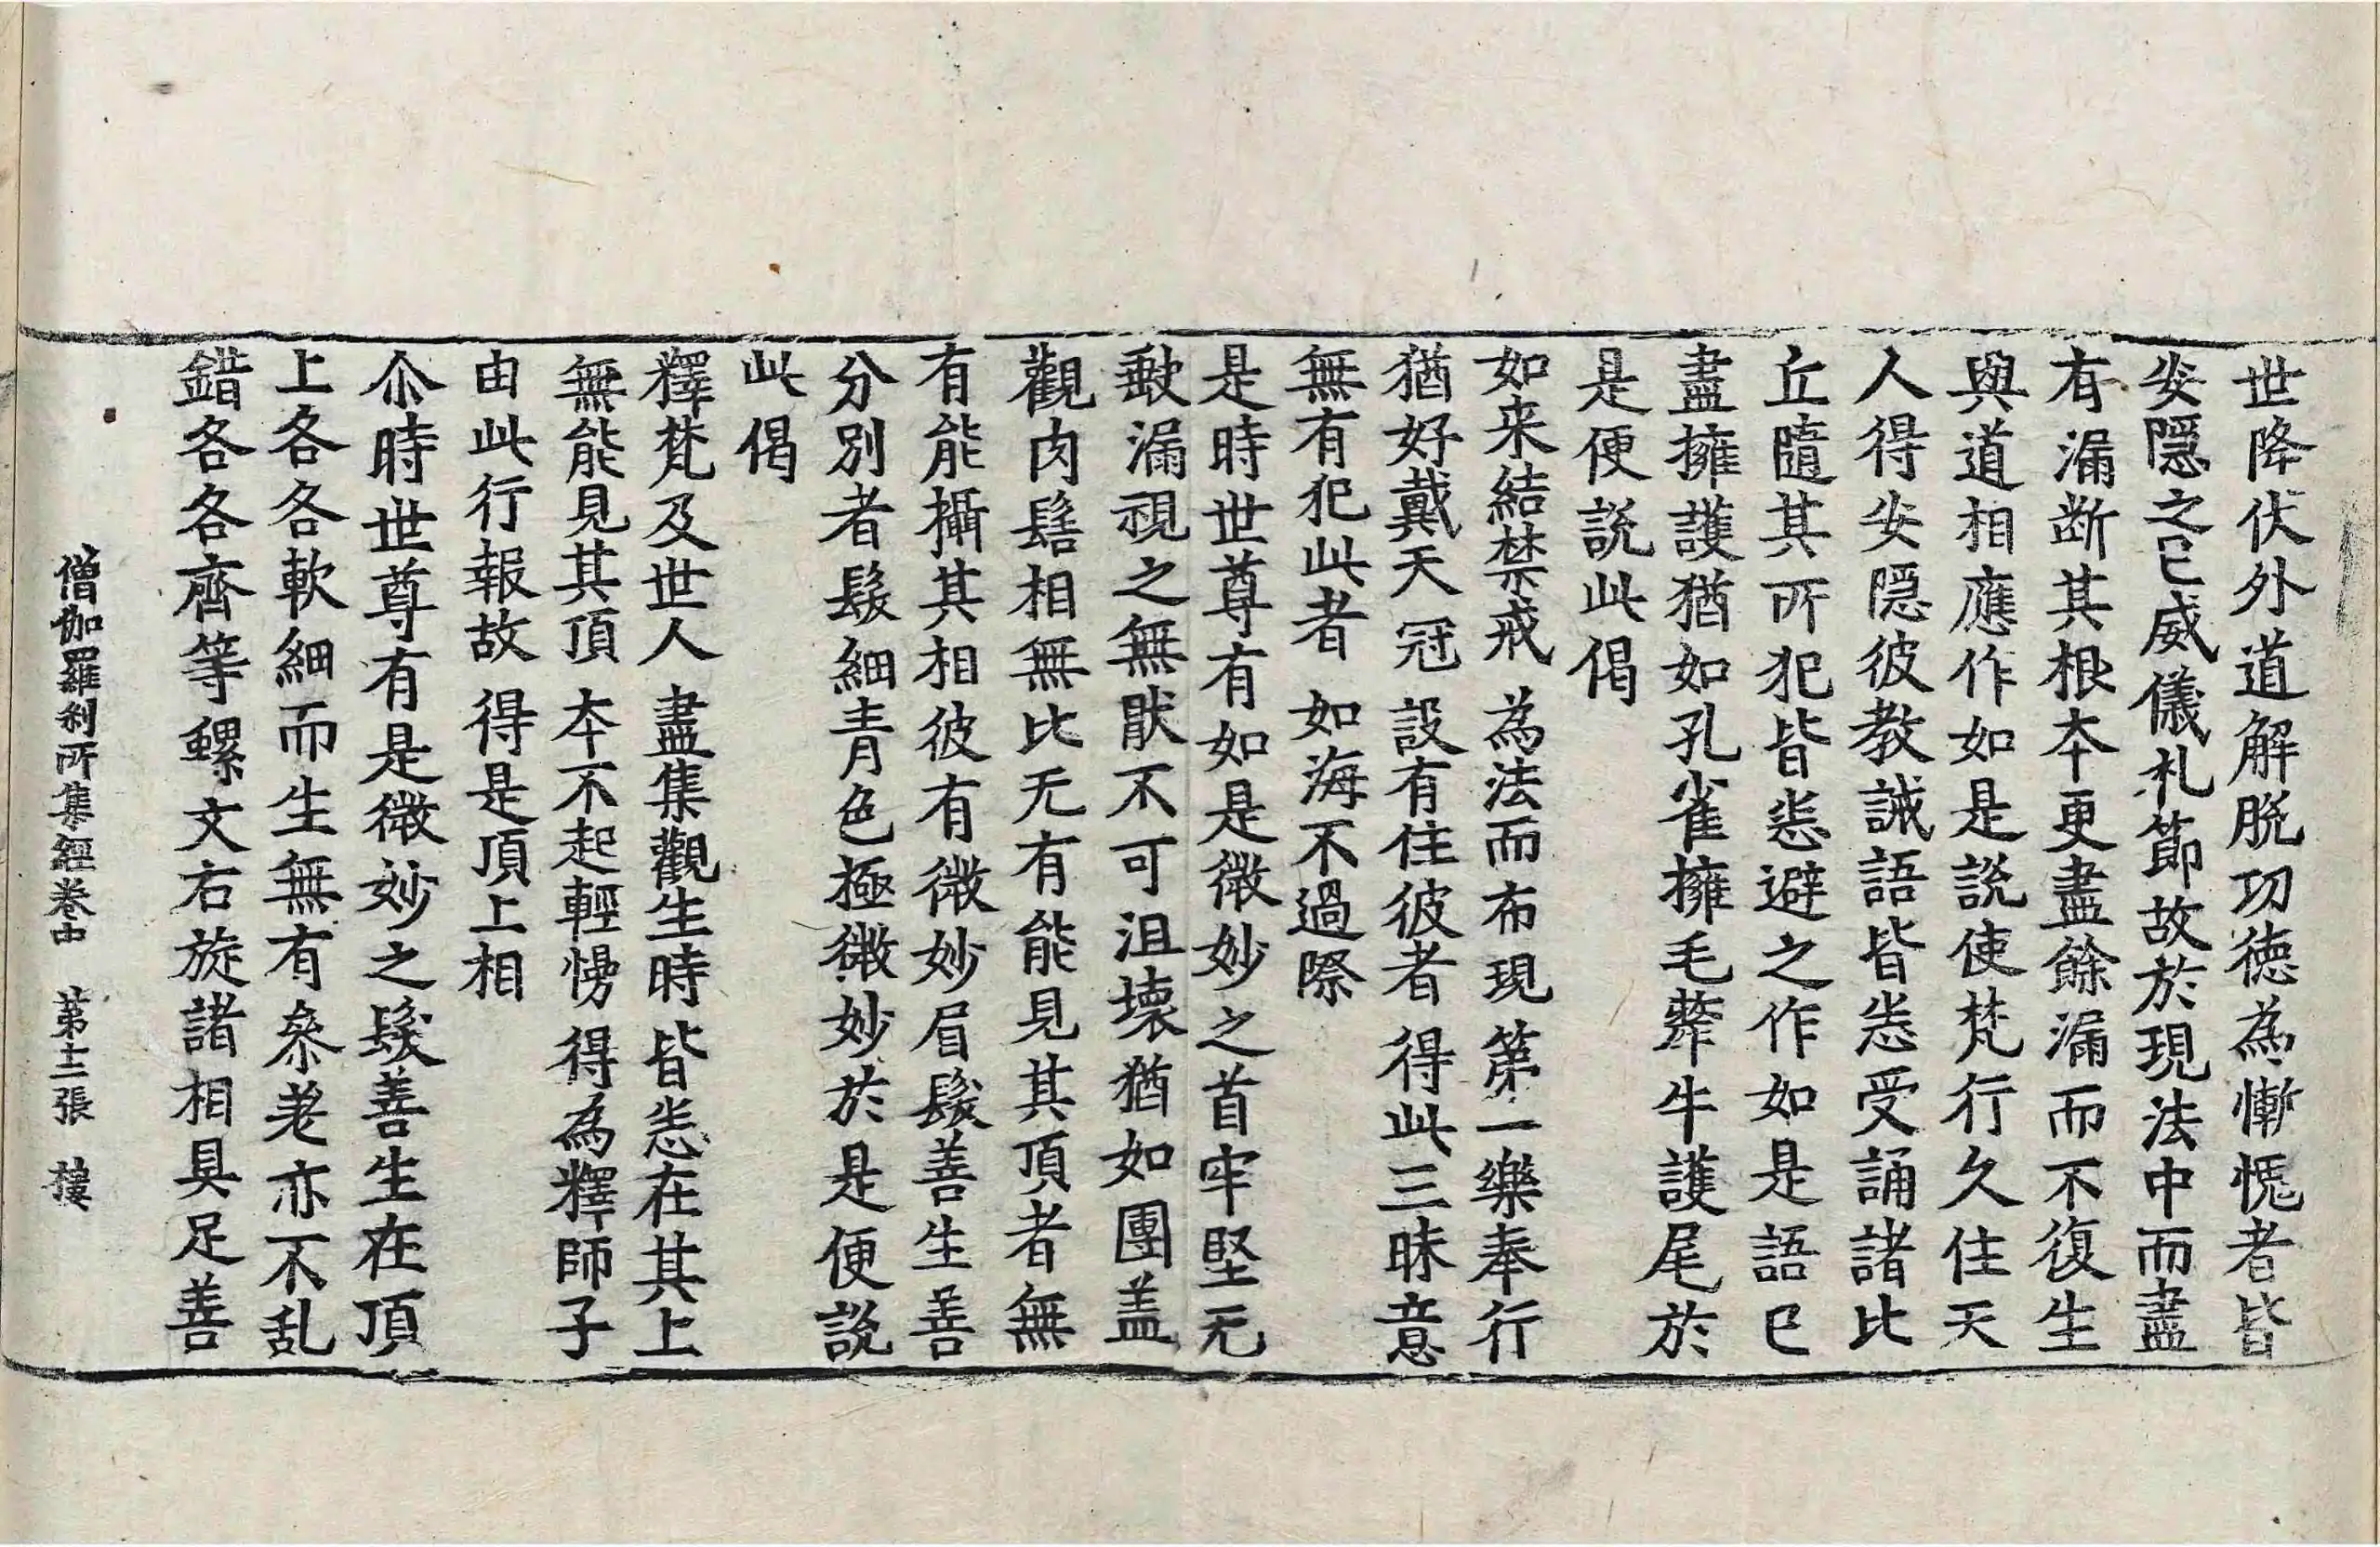 世降伏外道解脱功徳為慚愧者皆
安隱之已威儀礼節故於現法中而盡
有漏断其根本更盡餘漏而不復生
與道相應作如是説使梵行久住天
人得安隱彼教誡語皆悉受誦諸比
丘隨其所犯皆悉避之作如是語已
盡擁護猶如孔雀擁毛犛牛護尾於
是便説此偈
如来結禁戒　為法而布現　第一樂奉行
猶好戴天冠　設有住彼者　得此三昧意
無有犯此者　如海不過際
是時世尊有如是微妙之首牢堅无
漏視之無猒不可沮壞猶如團盖
觀肉髻相無比无有能見其頂者無
有能攝其相彼有微妙眉髮善生善
分別者髮細青色極微妙於是便説
此偈
釋梵及世人　盡集觀生時　皆悉在其上
無能見其頂　本不起輕慢　得為釋師子
由此行報故　得是頂上相
尒時世尊有是微妙之髮善生在頂
上各各軟細而生無有叅差亦不乱
錯各各齊等螺文右旋諸相具足善
僧伽羅刹所集經卷中　第十二張　樓